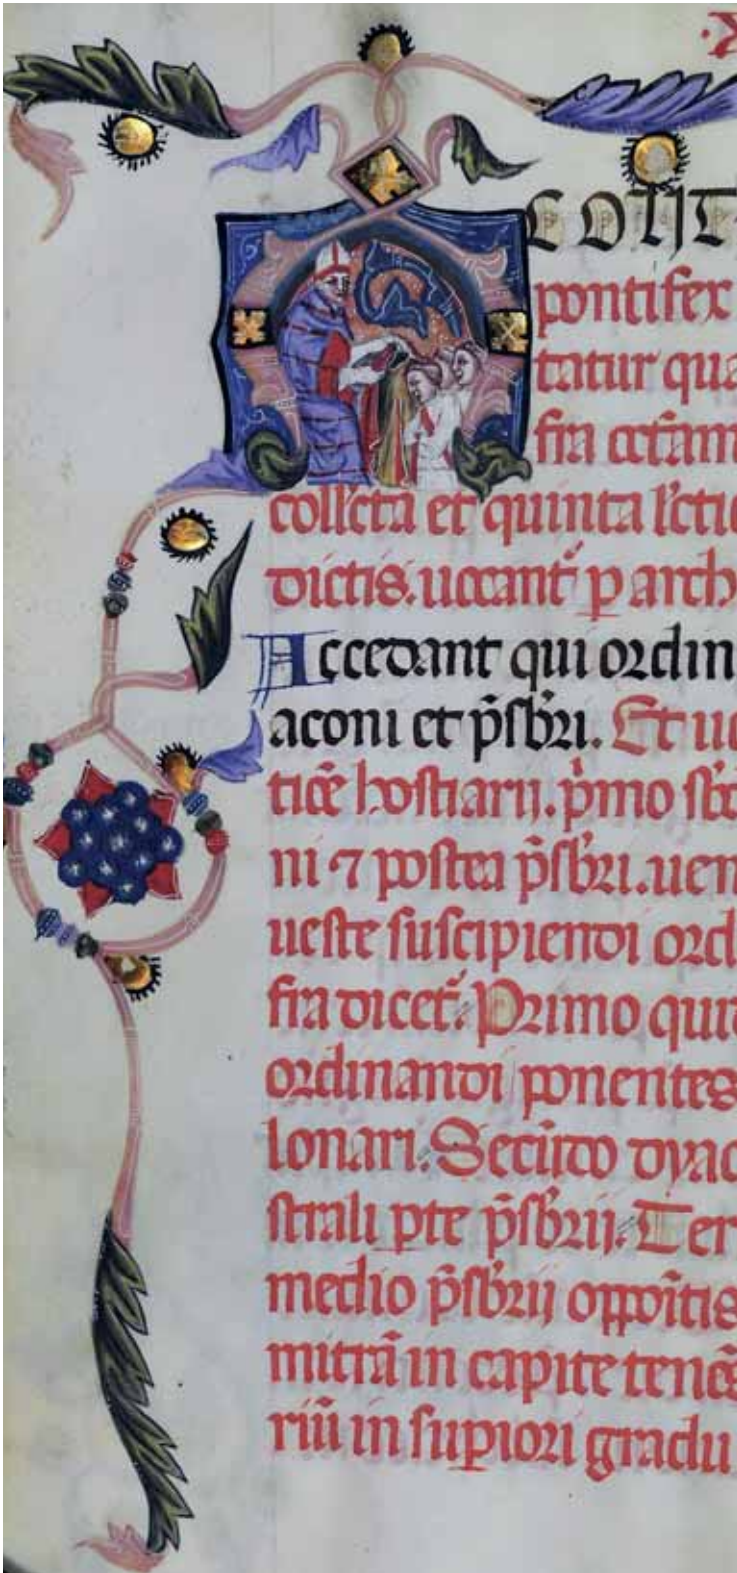 pontifex
tatur qua
fra
collecta et quinta lectio
dictis. uocant' p arch
Accedant qui ordin
aconi et p̄sb̄ri. Et uo
tice hostiarij. p̄mo
ni ⁊ postea p̄sb̄ri. uen
ueste suscipiendi ord
fra dicet'. Primo qui
ordinandi ponentes
lonari. Secūdo dyac
strali pte p̄sb̄rij. Ter
medio p̄sb̄rij oppoītis
mitrā in capite tenēs
riū in supiori gradu